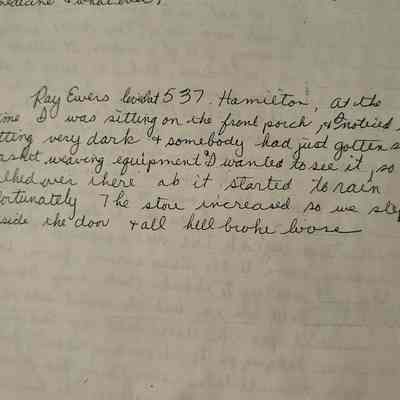 medicine + whatever,
Ray Ewers lived at 537 Hamilton, at the
me I was sitting on the front porch, + I noticed
tting very dark + somebody had just gotten s
asket weaving equipment + I wanted to see it, so
lked over there as it started to rain
ortunately The store increased so we ste
side the door + all hell broke loose